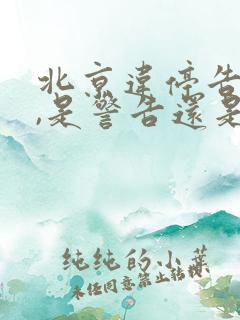 北京違停告
,是警告還是
纯纯的小葉
未经同意禁止转载